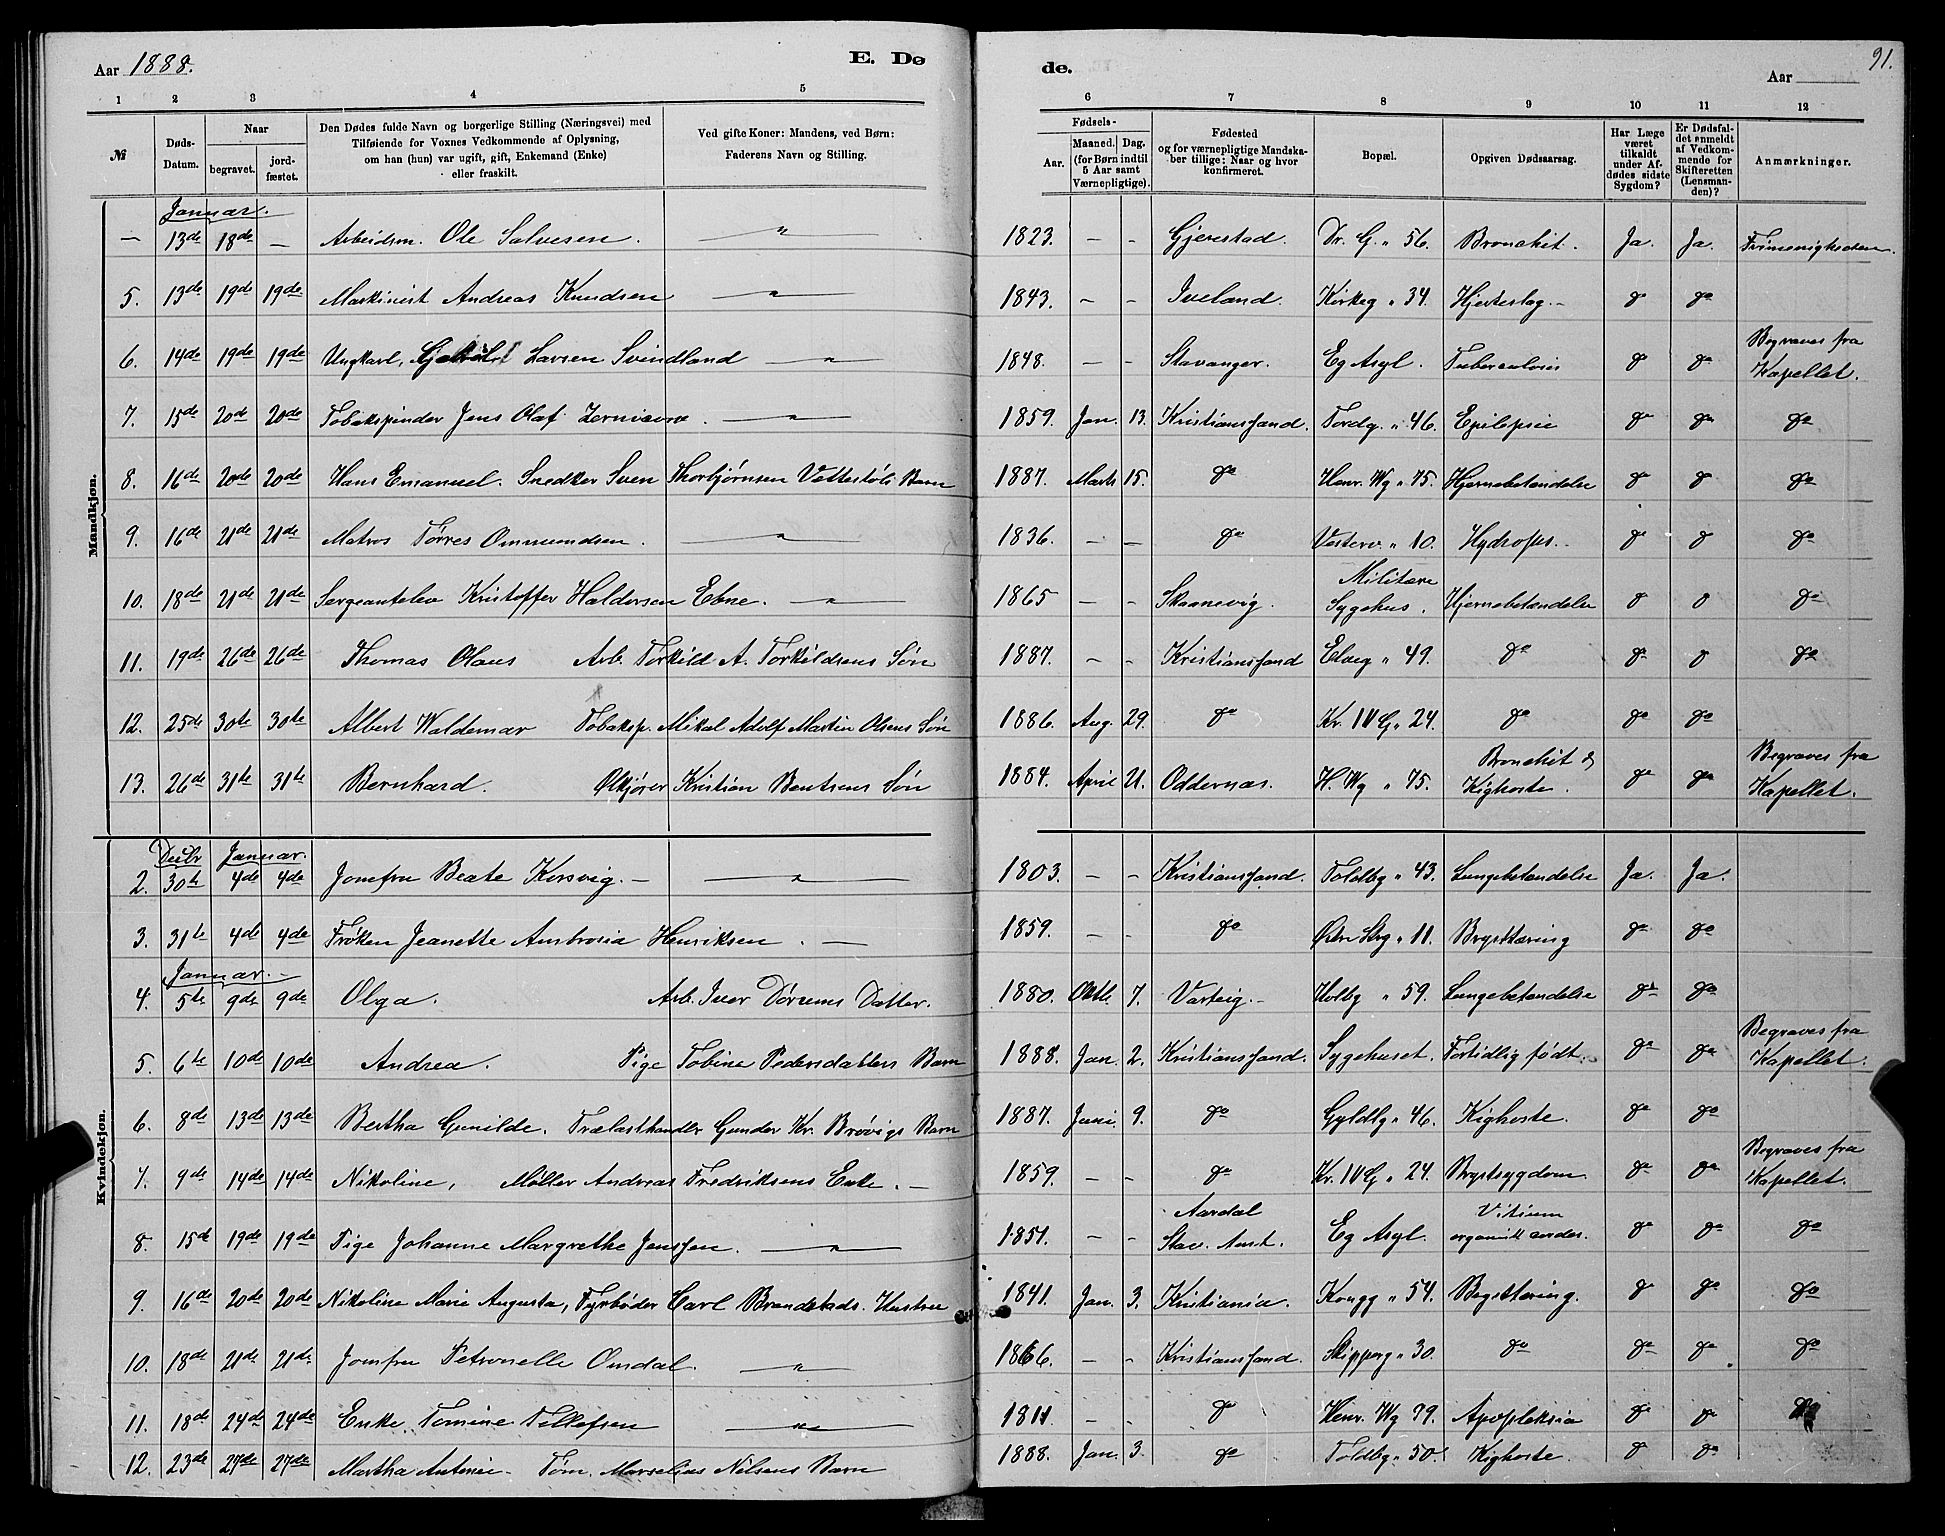 Aar 1888. E. Dø
de. Aar 91.
1 2 3 4 5
6 7 8 9 10 11 12
№ Døds-Datum. Naar begravet. jordfæstet. Den Dødes fulde Navn og borgerlige Stilling (Næringsvei) med Tilføiende for Voxnes Vedkommende af Oplysning, om han (hun) var ugift, gift, Enkemand (Enke) eller fraskilt. Ved gifte Koner: Mandens, ved Børn: Faderens Navn og Stilling.
Fødsels- Aar. Maaned. Dag. (for Børn indtil 5 Aar samt Værnepligtige). Fødested og for værnepligtige Mandskaber tillige: Naar og hvor konfirmeret. Bopæl. Opgiven Dødsaarsag. Har Læge været tilkaldt under Afdødes sidste Sygdom? Er Dødsfaldet anmeldt af Vedkommende for Skifteretten (Lensmanden)? Anmærkninger.
Mandkjøn.
Januar.
— 13de 18de — Arbeidsm. Ole Salvesen. — " — 1823. — — Gjerestad. Dr. G. " 56. Bronchit. Ja. Ja. Frimenigheden.
5. 13de 19de 19de Maskinist Andreas Knudsen — " — 1843. — — Iveland. Kirkeg " 34. Hjerteslag. — do do
6. 14de 19de 19de Ungkarl, Larsen Svindland — " — 1848. — — Stavanger. Eg Asyl. Tuberculosis do do Begraves fra Kapellet.
7. 15de 20de 20de Tobakspinder Jens Olaf Zerniavne. — " — 1859. Jan. 13. Kristianssand. Tordg. " 46. Epilepsie do do do
8. 16de 20de 20de Hans Emanuel. Snedker Sven Thorbjørnsen Vettestøls Barn 1887. Marts 15. do Henr. Wg " 75. Hjernebetændelse do do do
9. 16de 21de 21de Matros Tørres Ommundsen. — " — 1836. — — do Vesterv. " 10. Hydrops. — do do do
10. 18de 21de 21de Sergeantelev Kristoffer Haldorsen Ebne. — " — 1865 — — Skaanevig. Militære Sygehus. Hjernebetændelse do do do
11. 19de 26de 26de Thomas Olaus Arb. Torkild A. Torkildsens Søn 1887. — — Kristianssand Elveg " 49. do do do do
12. 25de 30te 30te Albert Waldemar Tobaksp. Mikal Adolf Martin Olsens Søn 1886. Aug. 29. do Kr. IV G " 24. do do do
13. 26de 31te 31te Bernhard. Ølkjører Kristian Bentsens Søn 1884. April 21. Oddernæs. H. Wg " 75. Bronchit & Kighoste. do do Begraves fra Kapellet.
Kvindekjøn.
Decbr Januar.
2. 30te 4de 4de Jomfru Beate Korsvig. — — " — 1803. — — Kristianssand. Toldbg " 43. Lungebetændelse Ja. Ja.
3. 31te 4de 4de Frøken Jeanette Ambrosia Henriksen. — 1859. — — do Østre Strg " 11. Brysttæring do do
Januar. —
4. 5te 9de 9de Olga. Arb. Iver Dørums Datter. 1880. Octb. 7. Varteig. — Holbg " 59. Lungebetændelse do do
5. 6te 10de 10de Andrea. Pige Tobine Pedersdatters Barn 1888. Jan. 2. Kristianssand. Sygehuset. Fortidlig født. do do Begraves fra Kapellet.
6. 8de 13de 13de Bertha Gunilde. Trælasthandler Gunder Kr. Brøvigs Barn 1887. Juni. 9. do Gyldbg " 46. Kighoste. do do
7. 9de 14de 14de Nikoline, Møller Andreas Fredriksens Enke. — 1859. — — do Kr. IV G " 24. Brystsygdom do do Begraves fra Kapellet.
8. 15de 19de 19de Pige Johanne Margrethe Jenssen. — " — 1851. — — Aardal Stav. Amt. Eg Asyl. Vitium do do do
9. 16de 20de 20de Nikoline Marie Augusta, Fyrbøder Carl Brandstads. Hustru 1841. Jan. 3. Kristiania. Kongg " 54. Brysttæring. do do do
10. 18de 21de 21de Jomfru Petronelle Omdal. — " — 1866. — — Kristianssand. Skipperg " 30. do do do do
11. 18de 24de 24de Enke Tomine Tellefsen — " — 1811 — — do Henr. Wg 79. Apopleksia do do
12. 23de 27de 27de Martha Antonie. Tøm. Marselius Nilsens Barn 1888. Jan. 3. do Toldbg " 50. Kighoste. do do